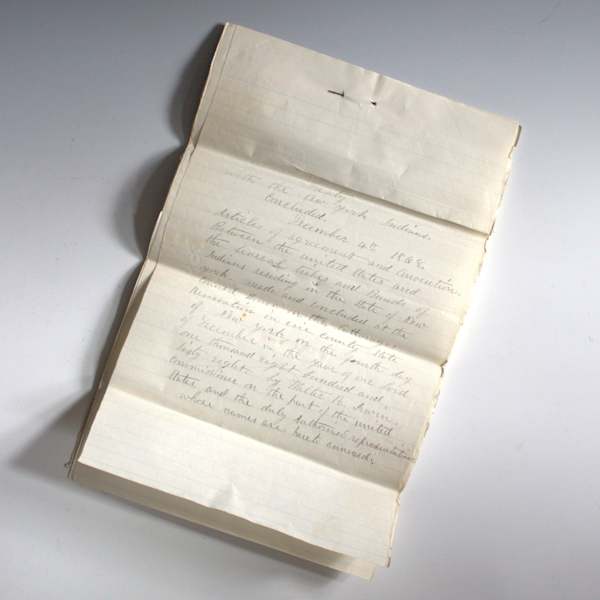 Treaty
with the New York Indians.
Concluded. December 4th 1868.
Articles of agreement and Convention
Between the united States and
the several tribes and Bands of
Indians residing in the State of New
york made and concluded at the
Reservation in erie county State
of New york on the fourth day
of December in the year of our Lord
one thousand eight hundred and
sixty eight by Walter R.
Commissioner on the part of the united
States and the duly Authorised representatives
whose names are hereto annexed;